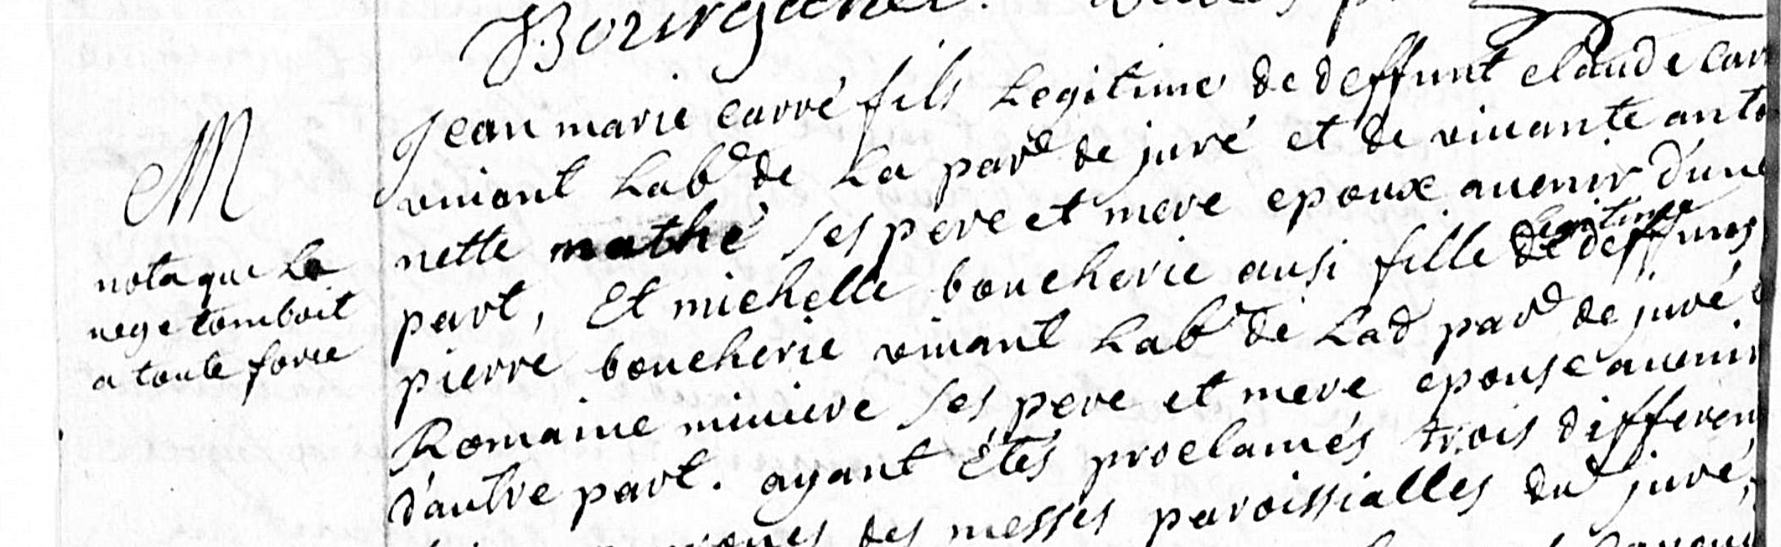 M
nota que la
nege tomboit
a toute force
Jean marie carré fils Legitime de deffunt claude
vivant Lab.r de La par.e de juré et de vivante anto
nette mathé ses pere et mere epoux avenir d'une
part, Et michelle boucherie ausi fille Legitime de deffunts
pierre boucherie vivant Lab.r de Lad par.e de juré
Romaine miniere ses pere et mere epouse avenir
d'autre part. ayant étés proclamés trois differen
des messes paroissialles du juré,